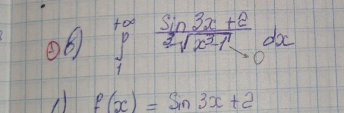 б) ∫₁^{+∞} (sin 3x + 2) / ∛(x² - 1) dx
→ 0
1) f(x) = sin 3x + 2